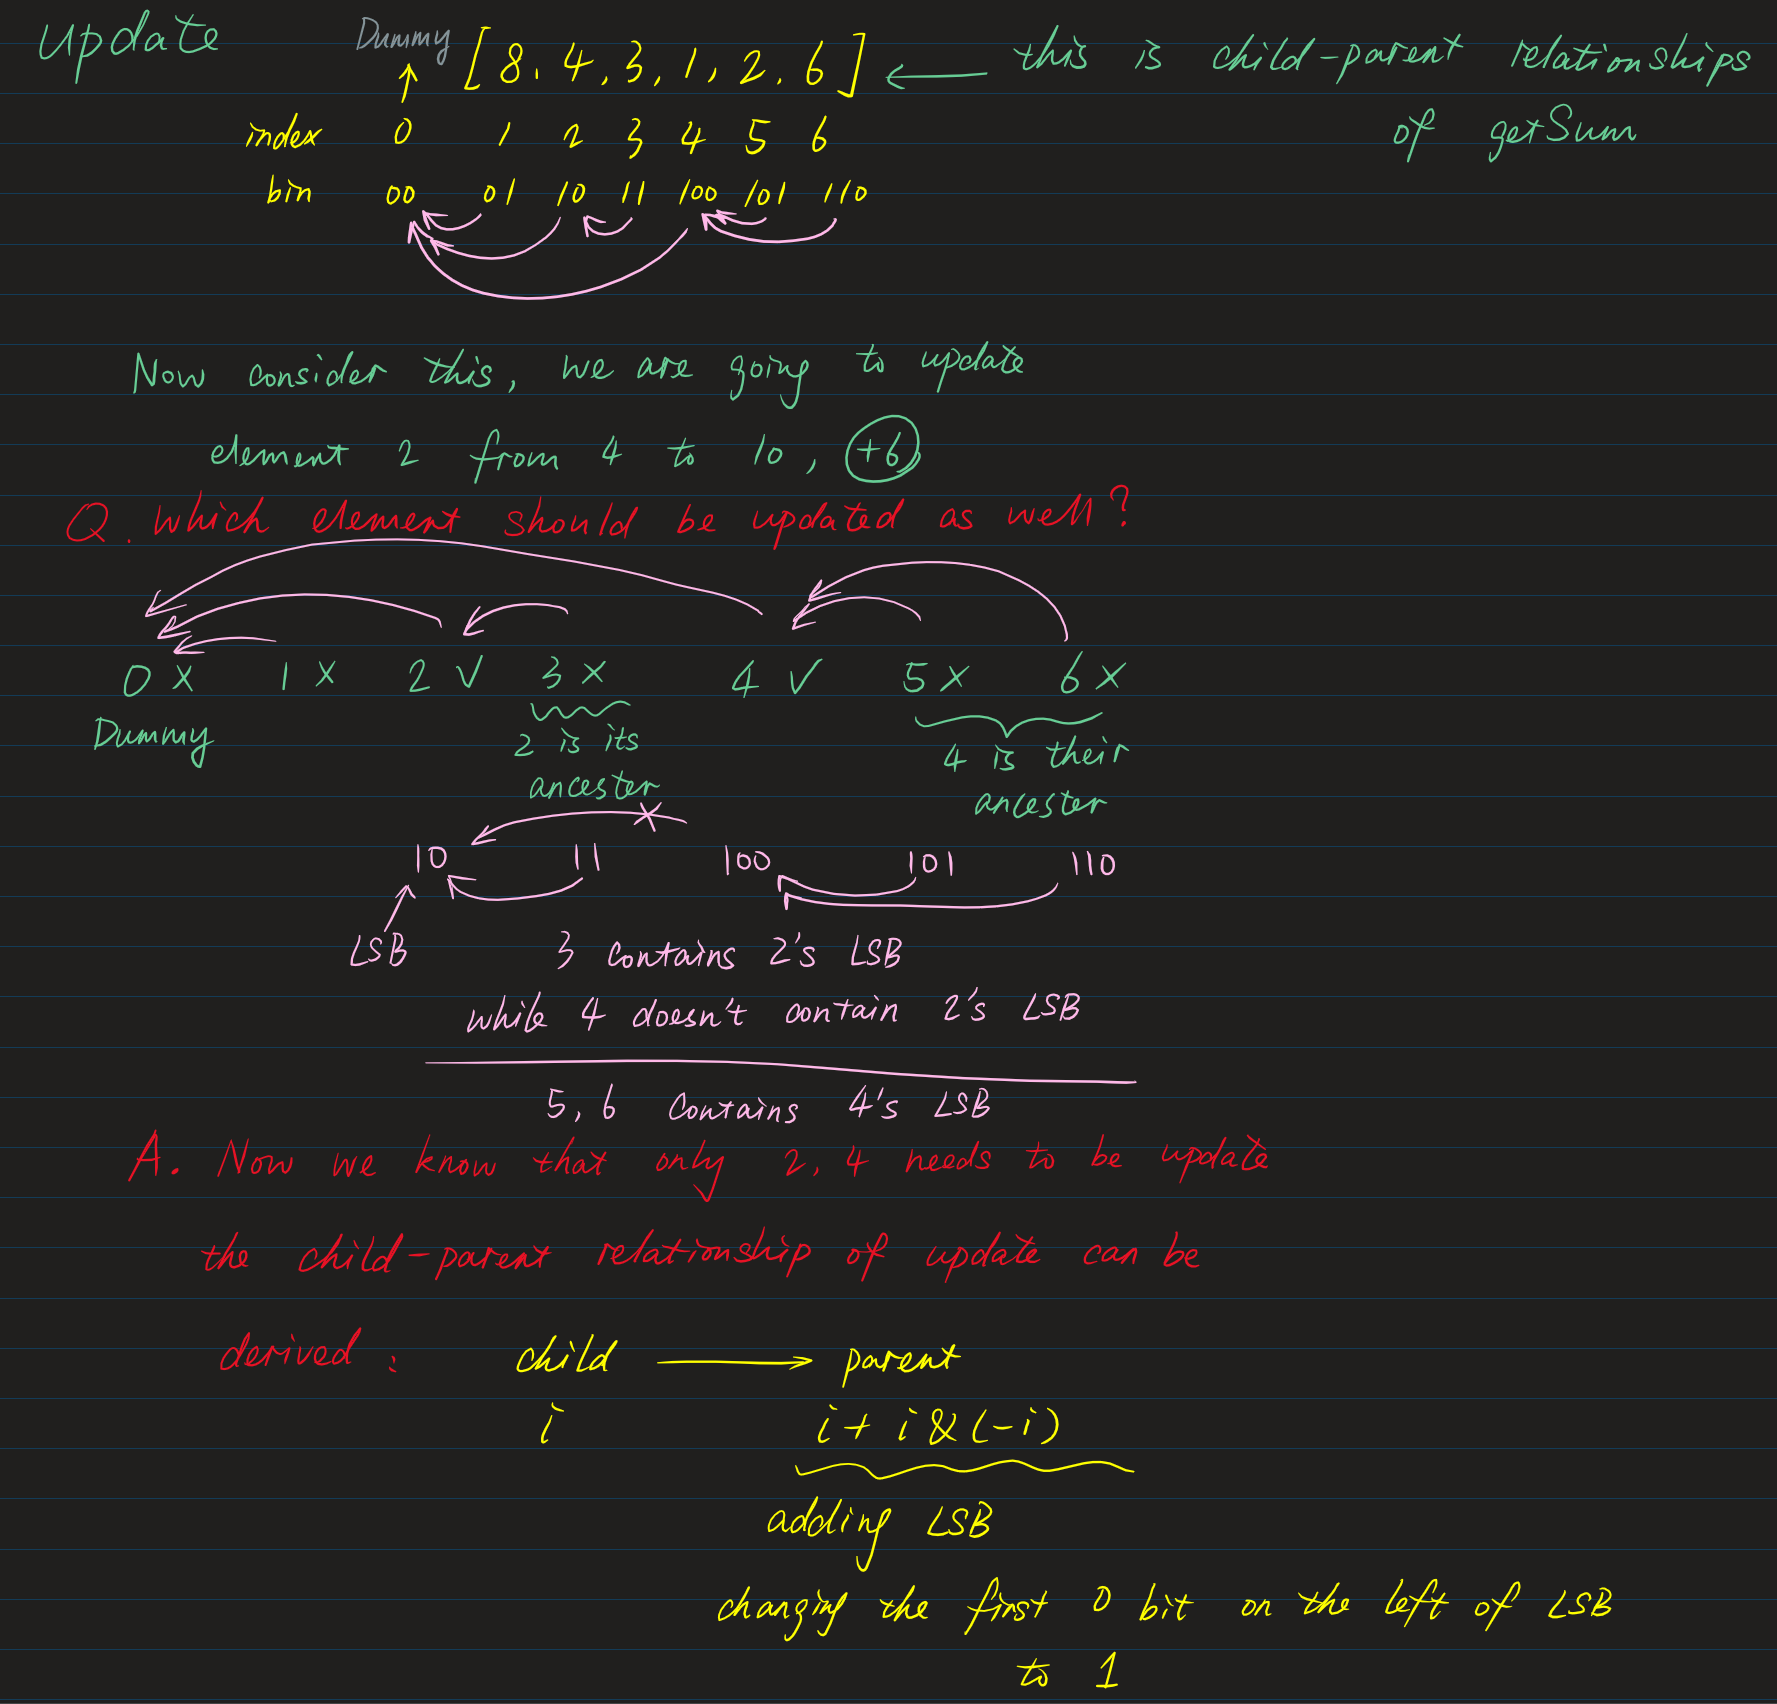 update Dummy [8, 4, 3, 1, 2, 6] this is child-parent relationships
of getSum
index 0 1 2 3 4 5 6
bin 00 01 10 11 100 101 110
Now consider this, we are going to update
element 2 from 4 to 10, +6
Q. Which element should be updated as well?
0 X 1 X 2 V 3 X 4 V 5 X 6 X
Dummy
2 is its
ancester
4 is their
ancester
10 11 100 101 110
LSB
3 contains 2's LSB
while 4 doesn't contain 2's LSB
5, 6 contains 4's LSB
A. Now we know that only 2, 4 needs to be update
the child-parent relationship of update can be
derived: child → parent
i i + i & (-i)
adding LSB
changing the first 0 bit on the left of LSB
to 1